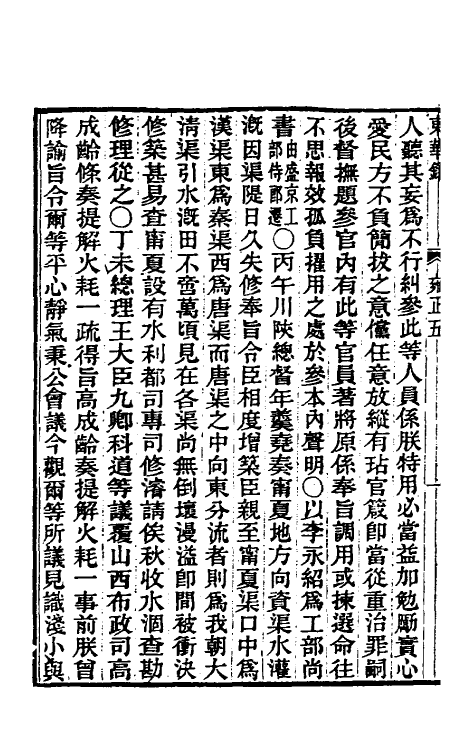 東華錄 雍正五
人聽其妄爲不行糾參此等人員係朕特用必當益加勉勵實心
愛民方不負簡拔之意儻任意放縱有玷官箴卽當從重治罪嗣
後督撫題參官內有此等官員著將原係奉旨調用或揀選命往
不思報效孤負擢用之處於參本內聲明〇以李永紹爲工部尚
書由盛京工部侍郎遷〇丙午川陝總督年羹堯奏甯夏地方向資渠水灌
漑因渠隄日久失修奉旨令臣相度增築臣親至甯夏渠口中爲
漢渠東爲秦渠西爲唐渠而唐渠之中向東分流者則爲我朝大
淸渠引水漑田不啻萬頃見在各渠尚無倒壞漫溢卽間被衝決
修築甚易查甯夏設有水利都司專司修濬請俟秋收水涸查勘
修理從之〇丁未總理王大臣九卿科道等議覆山西布政司高
成齡條奏提解火耗一疏得旨高成齡奏提解火耗一事前朕曾
降諭旨令爾等平心靜氣秉公會議今觀爾等所議見識淺小與